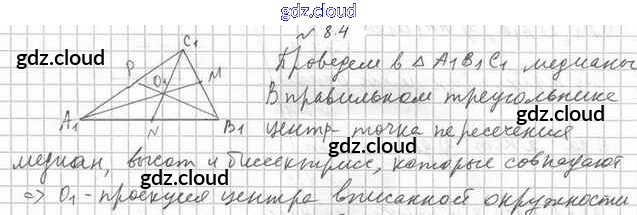 gdz.cloud
№ 8.4
C₁
gdz.cloud
gdz.cloud
Проведем в △ A₁B₁C₁ медианы
P
O₁
M
В правильном треугольнике
gdz.cloud
A₁
N
B₁
центр - точка пересечения
медиан, высот и биссектрис, которые совпадают
gdz.cloud
gdz.cloud
=> O₁ - проекция центра вписанной окружности